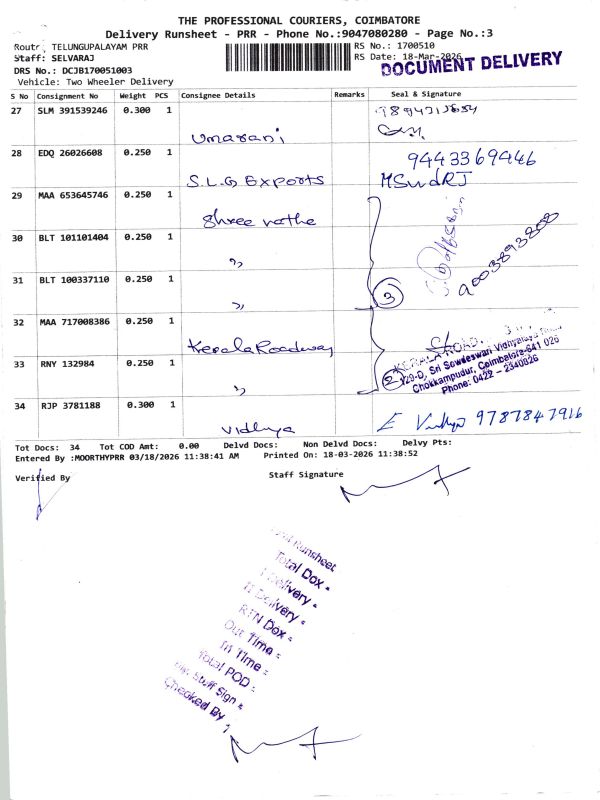 THE PROFESSIONAL COURIERS, COIMBATORE
Delivery Runsheet - PRR - Phone No.:9047080280 - Page No.:3
Route: TELUNGUPALAYAM PRR
RS No.: 1700510
Staff: SELVARAJ
RS Date: 18-Mar-2026
DOCUMENT DELIVERY
DRS No.: DCJB170051003
Vehicle: Two Wheeler Delivery
S No Consignment No Weight PCS Consignee Details Remarks Seal & Signature
27 SLM 391539246 0.300 1
Umarani
28 EDQ 26026608 0.250 1 9443369446
S.L.G Exports
29 MAA 653645746 0.250 1
Shree rathe
30 BLT 101101404 0.250 1
"
9003893808
31 BLT 100337110 0.250 1
" 3
32 MAA 717008386 0.250 1
Kerala Roadway
KERALA ROAD
33 RNY 132984 0.250 1
" 2
129-D, Sri Sowdeswari Vidhyalaya
Chokkampudur, Coimbatore-641 026
Phone: 0422 - 2340826
34 RJP 3781188 0.300 1
Vidhya E Vidhya 9787847916
Tot Docs: 34 Tot COD Amt: 0.00 Delvd Docs: Non Delvd Docs: Delvy Pts:
Entered By :MOORTHYPRR 03/18/2026 11:38:41 AM Printed On: 18-03-2026 11:38:52
Verified By Staff Signature
Runsheet
Total Dox =
Delivery =
N Delivery =
RTN Dox =
Out Time =
In Time =
Total POD =
Staff Sign =
Checked By